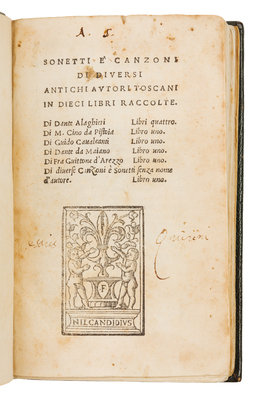 A. S.
SONETTI E CANZONI
DI DIVERSI
ANTICHI AVTORI TOSCANI
IN DIECI LIBRI RACCOLTE.
Di Dante Alaghieri Libri quattro.
Di M. Cino da Pistoia Libro uno.
Di Guido Caualcanti Libro uno.
Di Dante da Maiano Libro uno.
Di Fra Guittone d'Arezzo Libro uno.
Di diuerse Canzoni e Sonetti senza nome
d'autore. Libro uno.
F
NIL CANDIDIVS